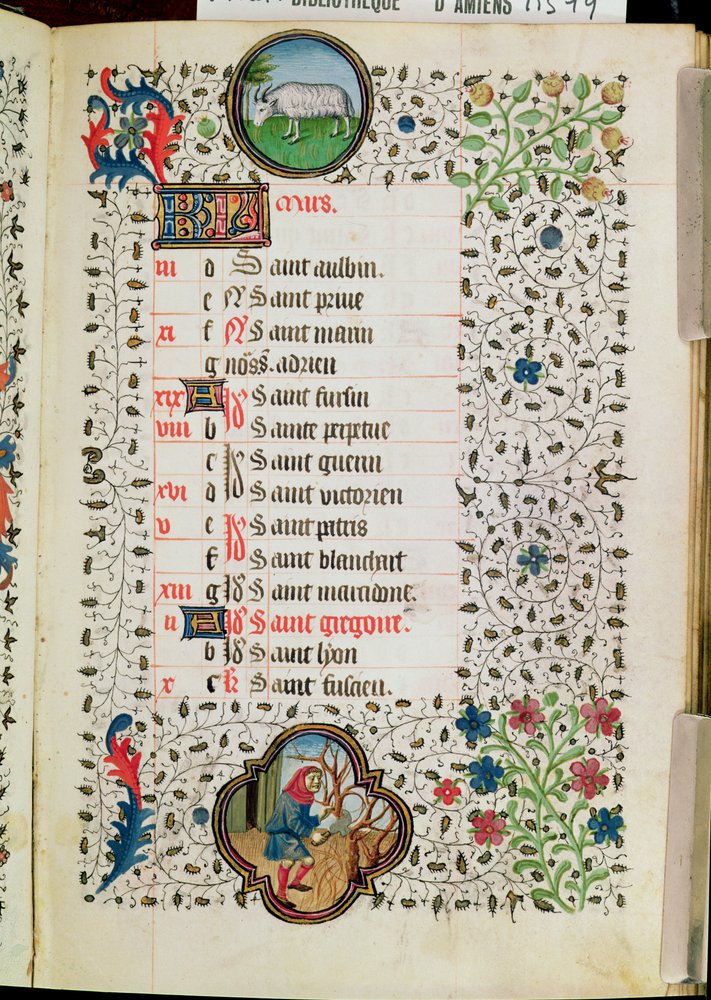 BIBLIOTHÈQUE D'AMIENS
KL Mars.
iii d Saint aulbin.
e N Saint priue
xi f N Saint marin
g noss. adrien
xix A Saint fursin
viii b Sainte perpetue
c Saint guerin
xvi d Saint victorien
v e Saint patris
f Saint blanchart
xiii g id Saint macidone.
ii A id Saint gregoire.
b id Saint lyon
x c k Saint fuscien.